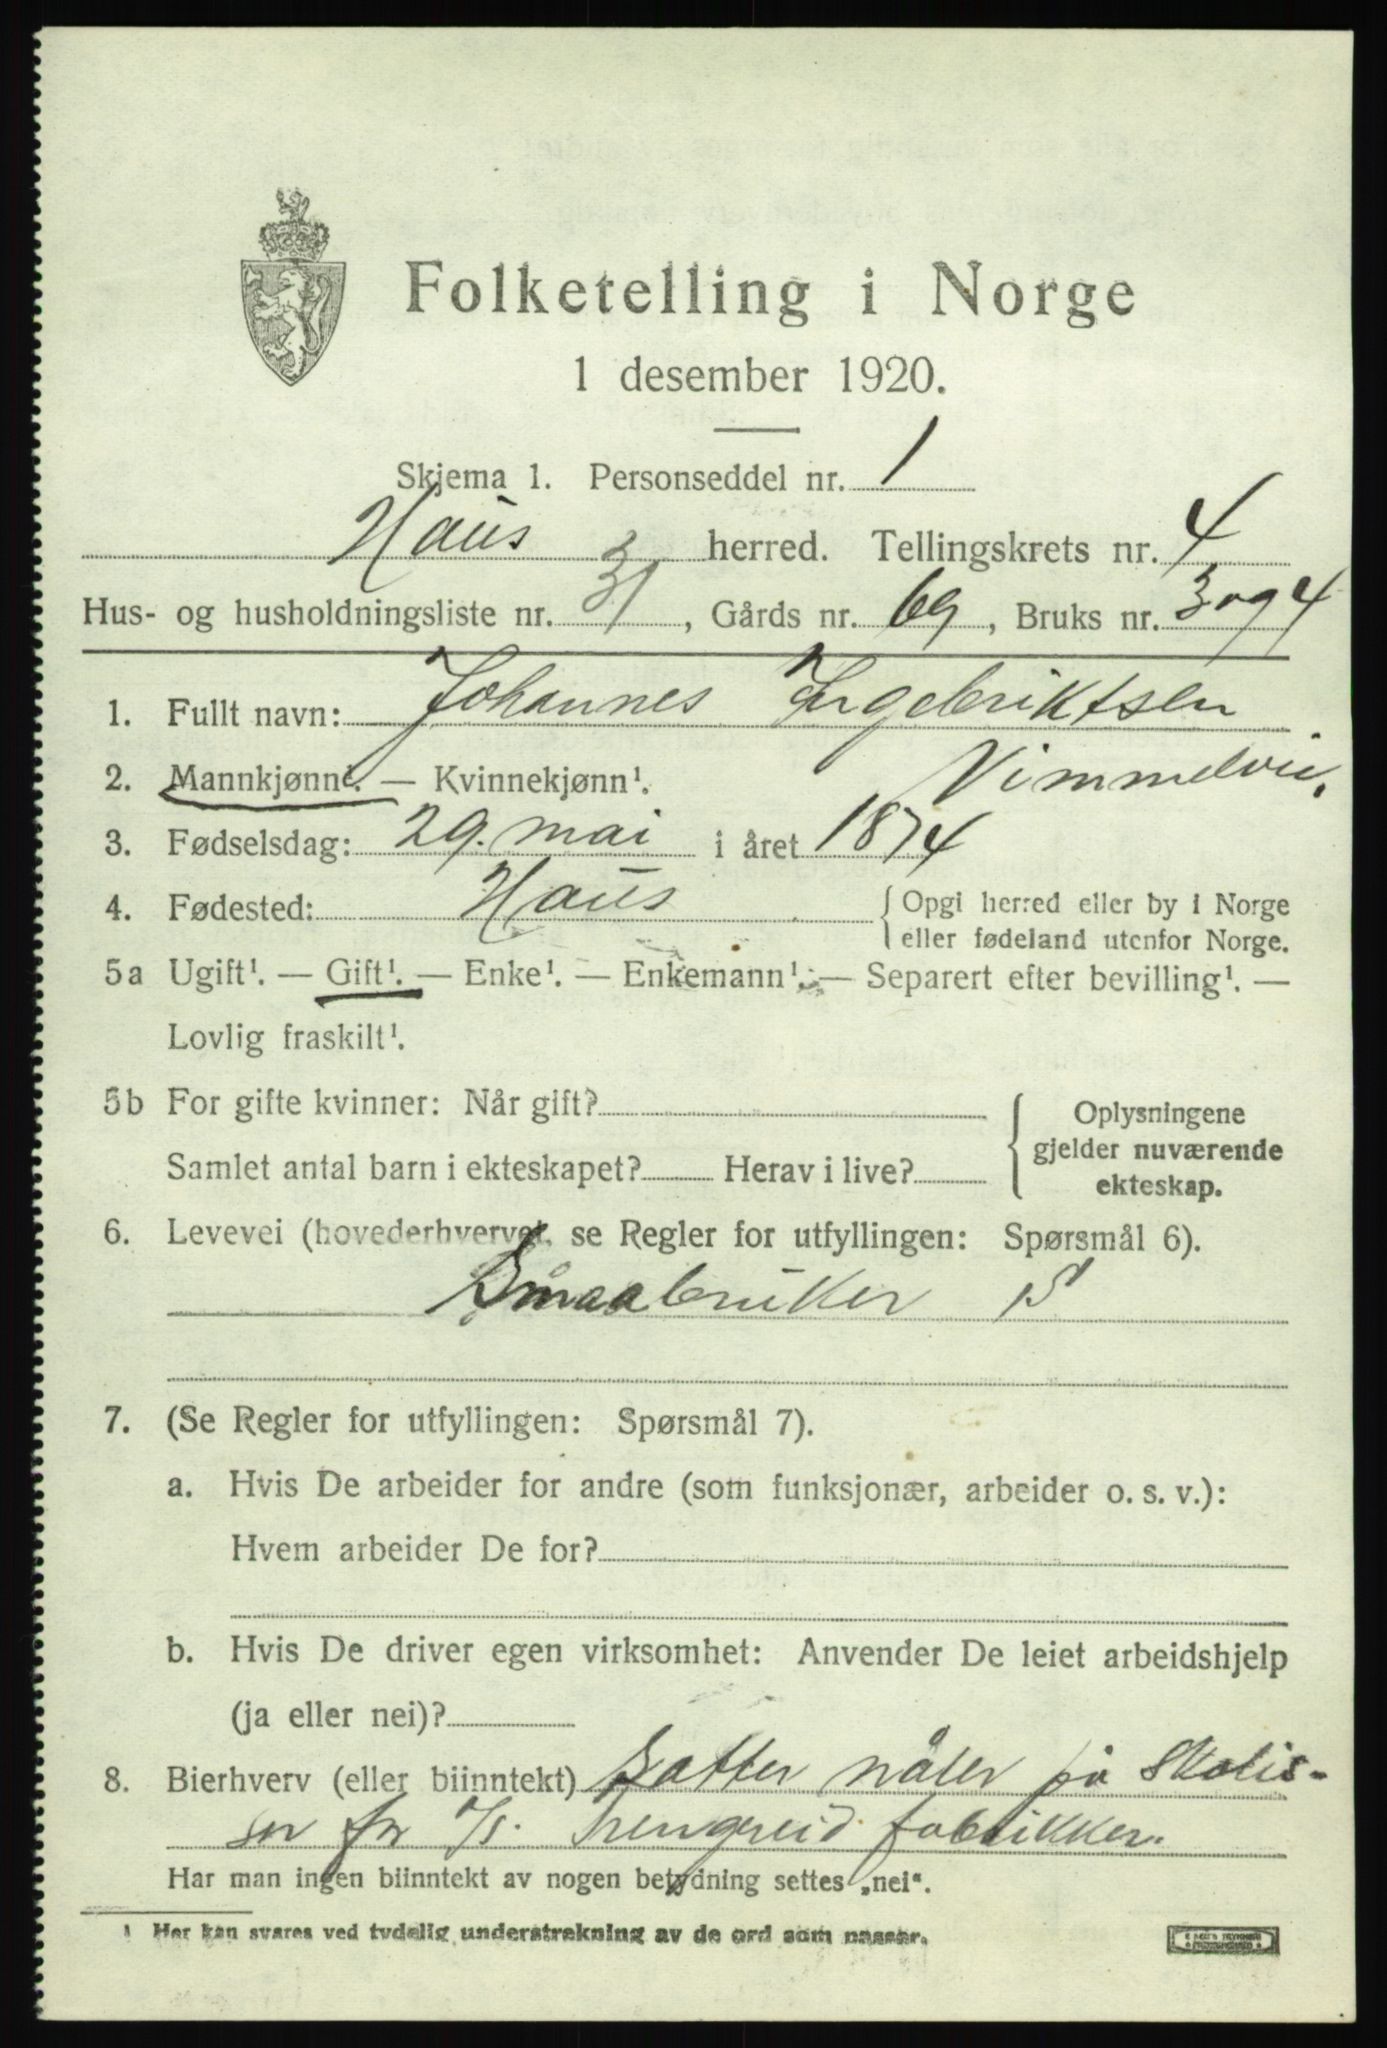 Folketelling i Norge
1 desember 1920.
Skjema 1. Personseddel nr. 1
Haus herred. Tellingskrets nr. 4
Hus- og husholdningsliste nr. 31, Gårds nr. 69, Bruks nr. 3 og 4
1. Fullt navn: Johannes Ingebriktsen
2. Mannkjønn¹. — Kvinnekjønn¹.
3. Fødselsdag: 29. mai i året 1874
4. Fødested: Haus { Opgi herred eller by i Norge
eller fødeland utenfor Norge.
5a Ugift¹. — Gift¹. — Enke¹. — Enkemann¹. — Separert efter bevilling¹. —
Lovlig fraskilt¹.
5b For gifte kvinner: Når gift? { Oplysningene
gjelder nuværende
ekteskap.
Samlet antal barn i ekteskapet? Herav i live?
6. Levevei (hovederhvervet, se Regler for utfyllingen: Spørsmål 6).
Småabruker S
7. (Se Regler for utfyllingen: Spørsmål 7).
a. Hvis De arbeider for andre (som funksjonær, arbeider o. s. v.):
Hvem arbeider De for?
b. Hvis De driver egen virksomhet: Anvender De leiet arbeidshjelp
(ja eller nei)?
8. Bierhverv (eller biinntekt) Satter nåler på
for A/S. Trengereid fabrikker.
Har man ingen biinntekt av nogen betydning settes „nei“.
¹ Her kan svares ved tydelig understrekning av de ord som passer.